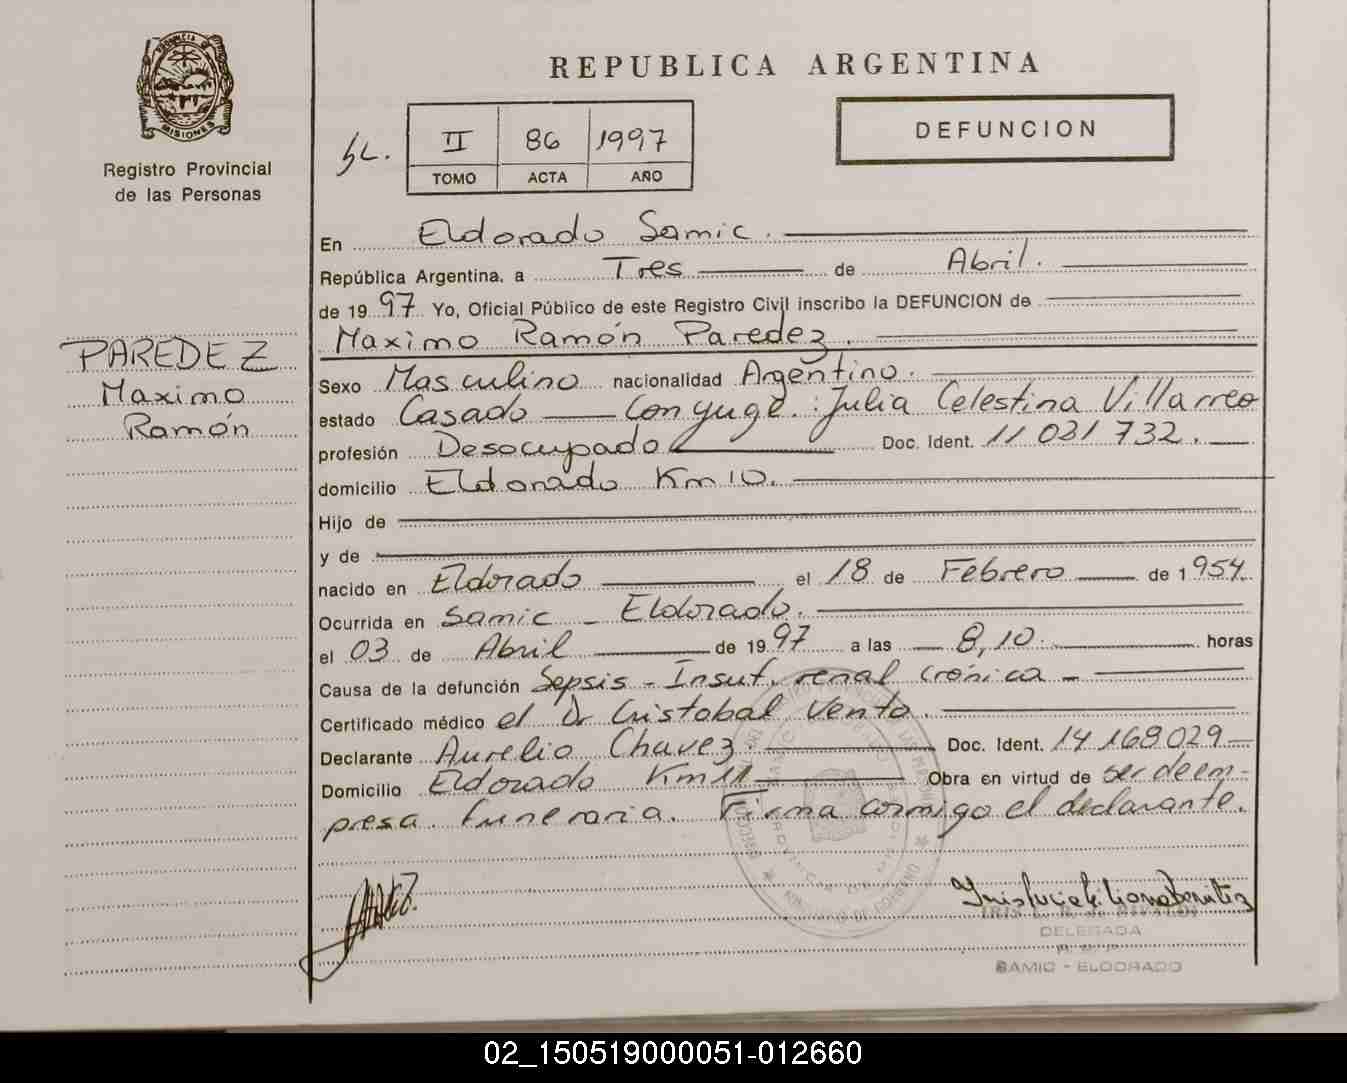 PROVINCIA DE
MISIONES
Registro Provincial
de las Personas
PAREDEZ
Maximo
Ramón
REPUBLICA ARGENTINA
II 86 1997
TOMO ACTA AÑO
DEFUNCION
En Eldorado Samic.
República Argentina, a Tres de Abril.
de 1997 Yo, Oficial Público de este Registro Civil inscribo la DEFUNCION de
Maximo Ramón Paredez.
Sexo Masculino nacionalidad Argentino.
estado Casado — Conyuge.: Julia Celestina Villarreo
profesión Desocupado Doc. Ident. 11 031 732.
domicilio Eldorado Km 10.
Hijo de
y de
nacido en Eldorado el 18 de Febrero de 1954
Ocurrida en Samic - Eldorado.
el 03 de Abril de 1997 a las 8,10 horas
Causa de la defunción Sepsis - Insuf. renal crónica -
Certificado médico el Dr Cristobal Vento.
Declarante Aurelio Chavez. Doc. Ident. 14 168 029
Domicilio Eldorado Km 11 Obra en virtud de ser de em-
presa funeraria. Firma conmigo el declarante.
DELEGADA
SAMIC - ELDORADO
02_150519000051-012660